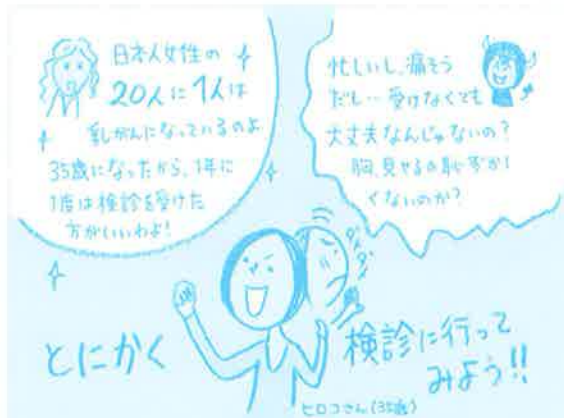 日本人女性の
20人に1人は
乳がんになっているのよ
35歳になったから、1年に
1度は検診を受けた
方がいいわよ!
忙しいし、痛そう
だし…受けなくても
大丈夫なんじゃないの?
胸、見せるの恥ずかし
くないのか?
とにかく
検診に行って
みよう!!
ヒロコさん(35歳)